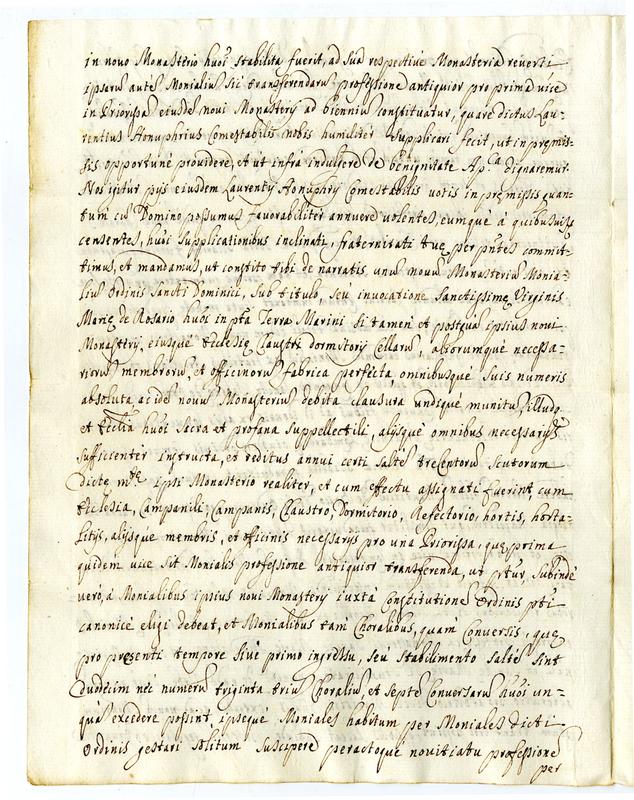 in novo Monasterio huõi stabilita fuerit, ad sua respectivè Monasteria reverti
ipsarũ autẽ Monialiũ sic transferendarũ professione antiquior pro prima vice
in Priorissa eiusdẽ novi Monasterij ad bienniũ constituatur, quare dictus Lau-
rentius Honuphrius Comestabilis nobis humiliter supplicari fecit, ut in premis-
sis opportunè providere, et ut infrà indulgere de benignitate Ap.ca dignaremur.
Nos igitur pijs eiusdem Laurentij Honuphrij Comestabilis votis in premissis quan-
tum cũ Domino possumus favorabiliter annuere volentes, eumquè à quibusvis
censentes, huõi supplicationibus inclinati, fraternitati tuę per p̃ntes commit-
timus, et mandamus, ut constito tibi de narratis, unũ novũ Monasteriũ Monia-
liũ Ordinis Sancti Dominici, sub titulo, seù invocatione Sanctissimę Virginis
Marię de Rosario huõi in p̃ta Terra Marini si tamen et postquã ipsius novi
Monasterij, eiusquè Ecclesię Claustri dormitorij Cellarũ, aliorumquè necessa-
riorũ membrorũ, et officinorũ fabrica perfecta, omnibusquè suis numeris
absoluta, ac idẽ novũ Monasteriũ debita clausura undiquè munitũ, illudq.
et Ecclia huõi sacra et profana suppellectili, alijsquè omnibus necessarijs
sufficenter instructa, et reditus annui certi saltẽ trecentorũ scutorum
dictę m.tę ipsi Monasterio realiter, et cum effectu assignati fuerint cum
Ecclesia, Campanili, Campanis, Claustro, Dormitorio, Refectorio, hortis, horta-
litijs, alijsque membris, et officinis necessarijs pro una Priorissa, quę prima
quidem vice sit Monialis professione antiquior transferenda, ut p̃tur, subindè
verò, à Monialibus ipsius novi Monasterij iuxtà Constitutiones Ordinis p̃ti
canonicè eligi debeat, et Monialibus tam Choralibus, quàm Conversis, quę
pro presenti tempore sivè primo ingressu, seù stabilimento saltẽ sint
duodecim nèc numerũ triginta triũ Choraliũ, et septẽ Conversarũ huõi un-
quã excedere possint, ipsequè Moniales habitum per Moniales dicti
Ordinis gestari solitum suscipere peractoque novitiatu professione
per